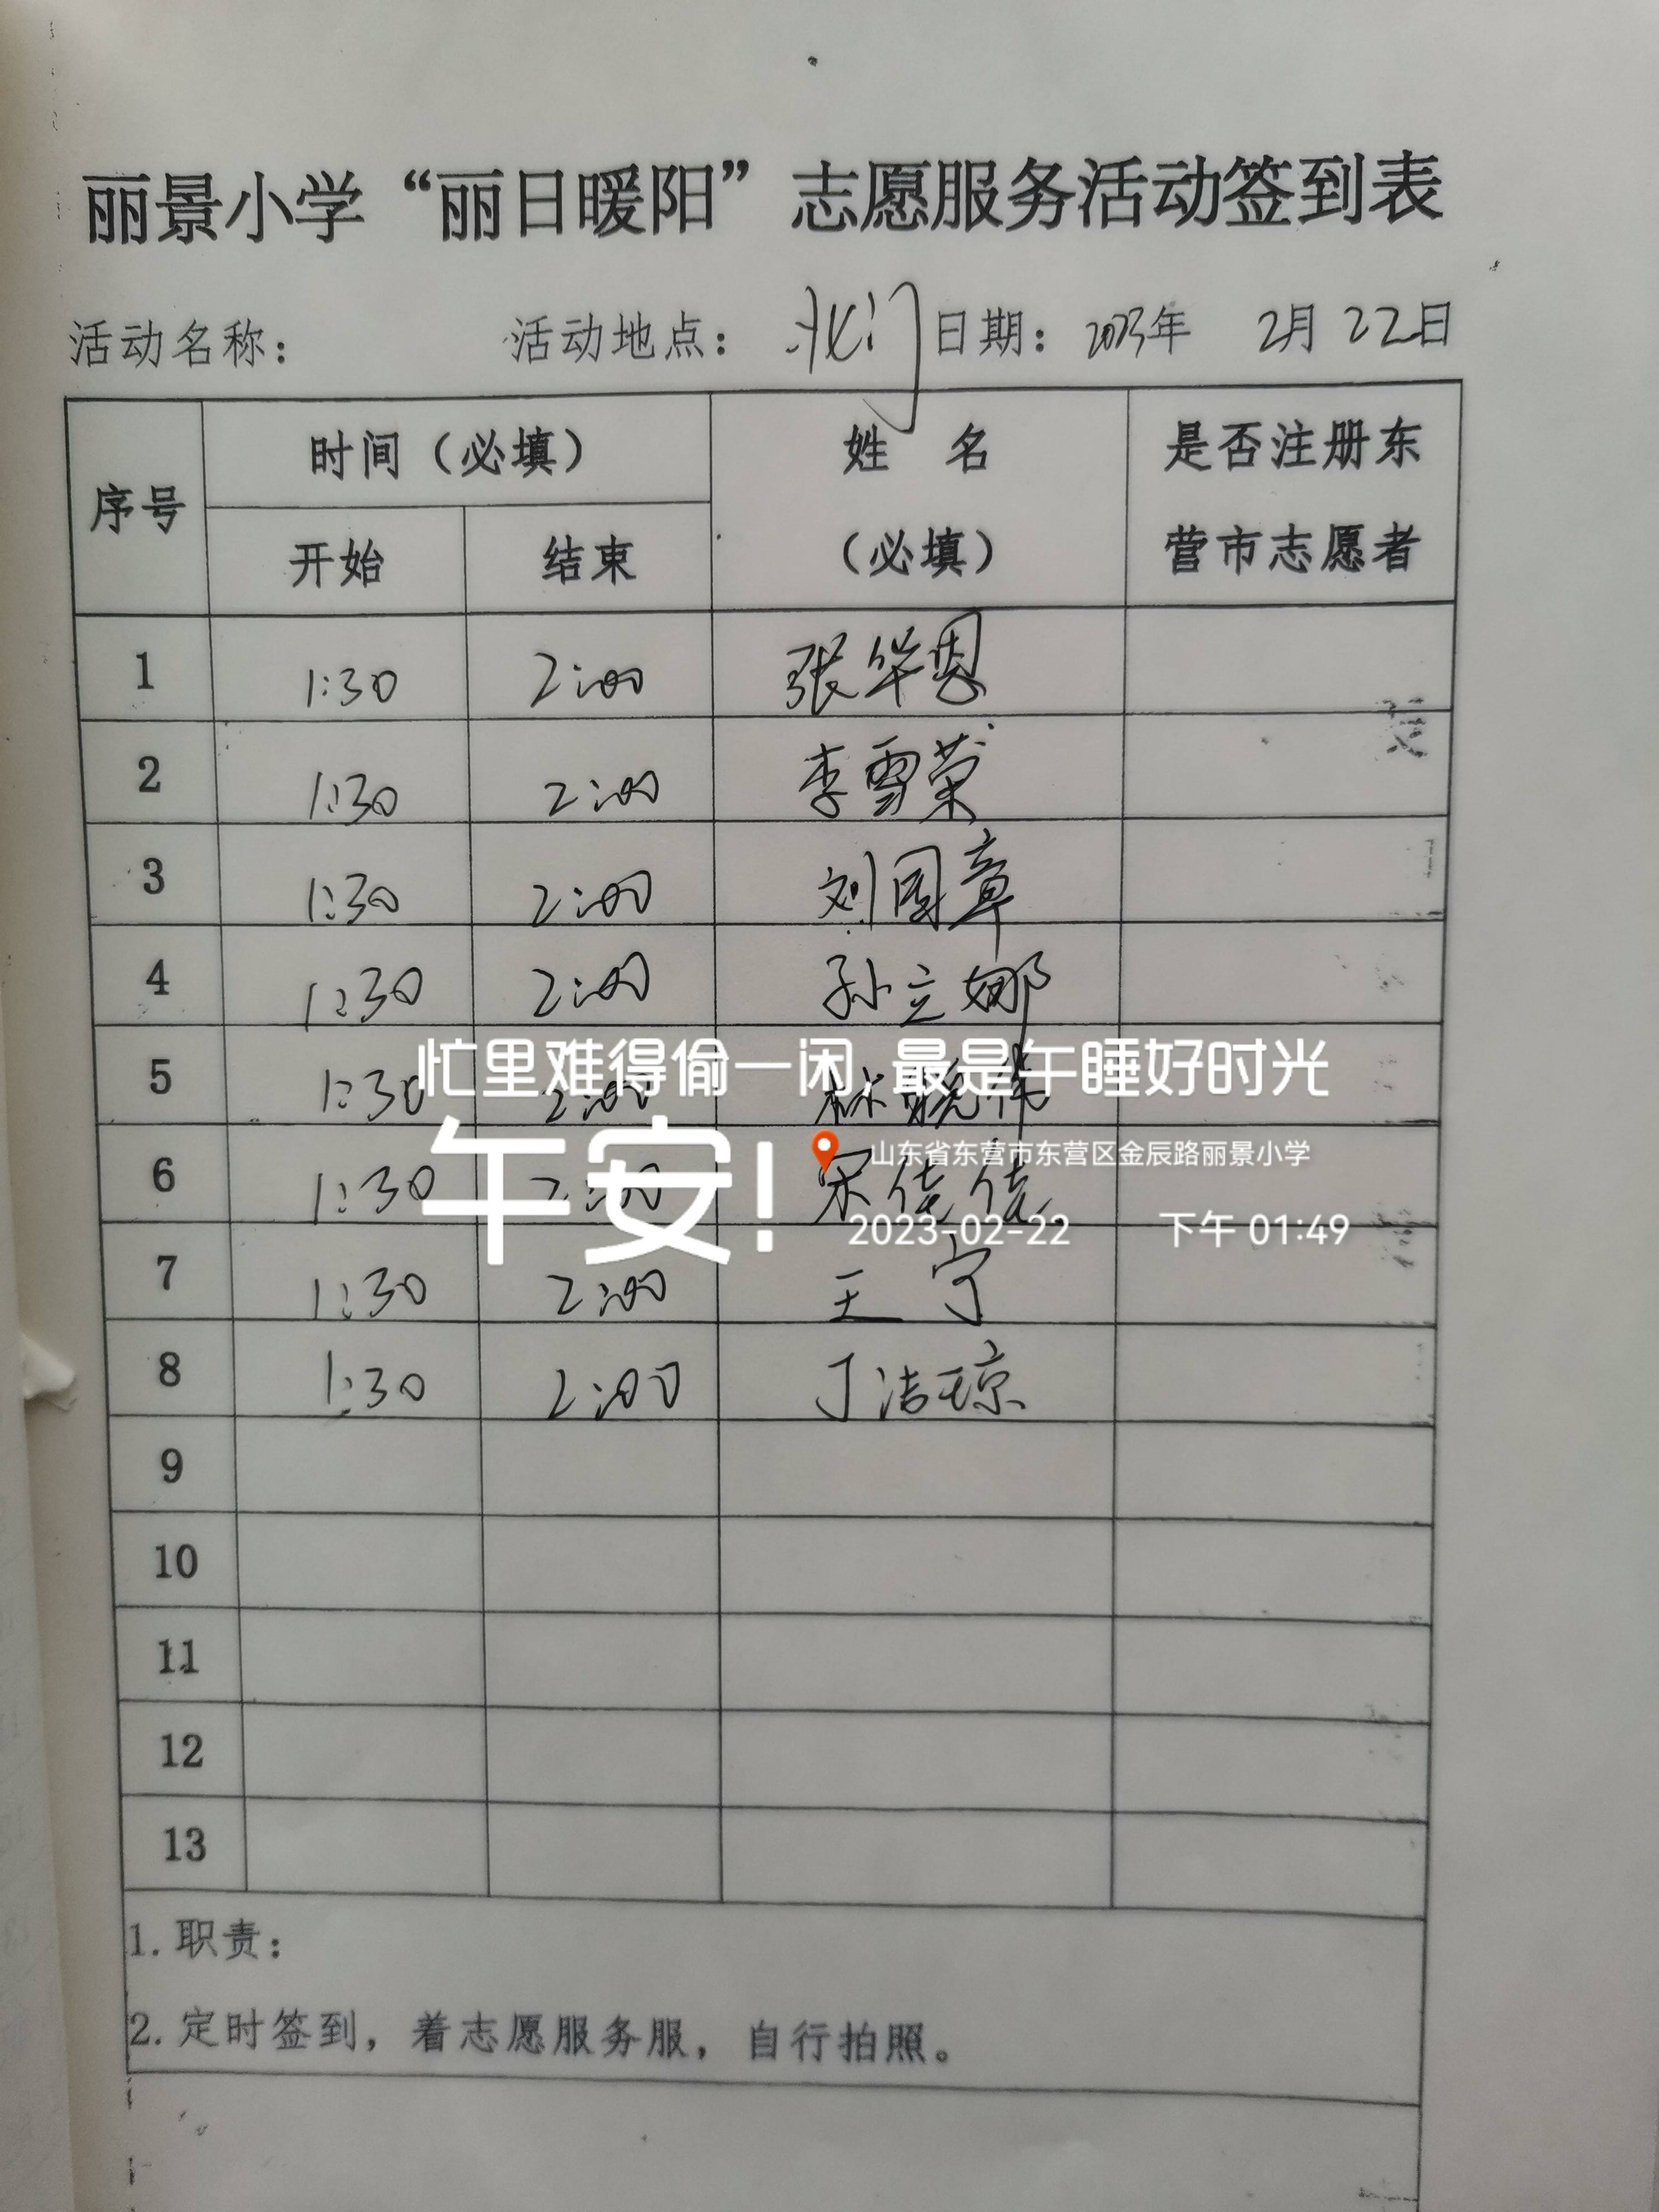 丽景小学“丽日暖阳”志愿服务活动签到表
活动名称： 活动地点：北门 日期：2023年 2月22日
序号 时间（必填） 姓 名（必填） 是否注册东营市志愿者
开始 结束
1 1:30 2:00 张华恩
2 1:30 2:00 李雪荣
3 1:30 2:00 刘国章
4 1:30 2:00 孙立娜
忙里难得偷一闲，最是午睡好时光
5 1:30 2:00 林
午安！
山东省东营市东营区金辰路丽景小学
6 1:30 2:00 宋倩倩
2023-02-22 下午 01:49
7 1:30 2:00 王宁
8 1:30 2:00 丁洁琼
9
10
11
12
13
1.职责：
2.定时签到，着志愿服务服，自行拍照。